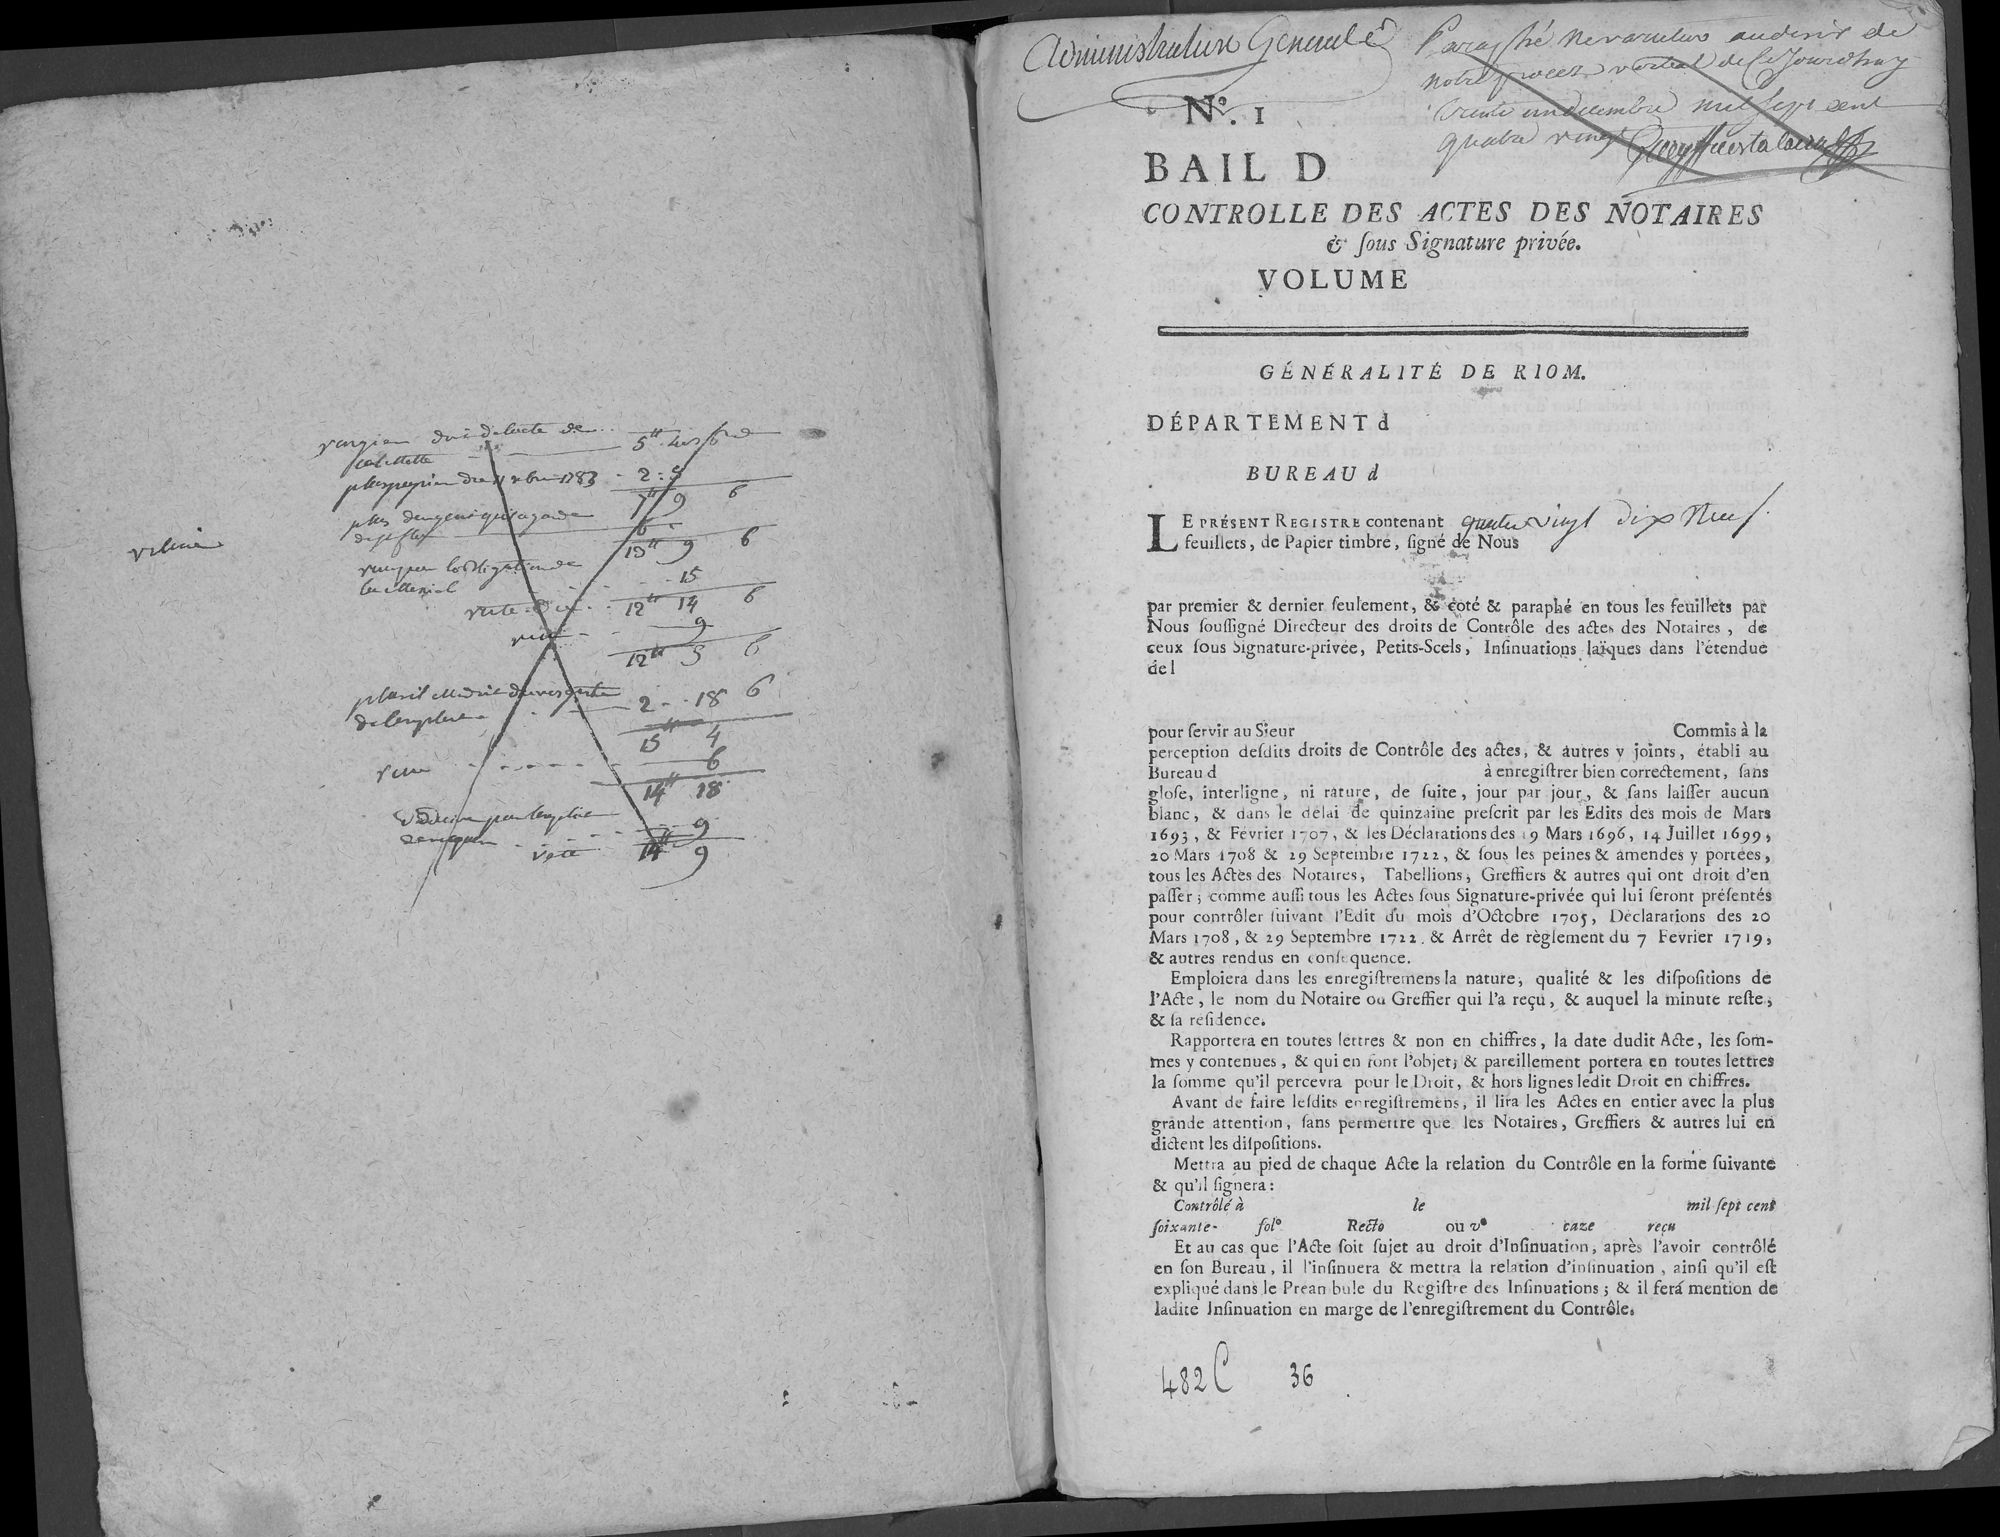 5 ₶
1783
2 : 5
7 ₶ 9 6
6
13 ₶ 9 6
15
12 ₶ 14 6
9
12 ₶ 5 6
2 .. 18 6
15 ₶ 4
6
14 ₶ 18
9
14 ₶ 9
Administration Generale
Paraphé ne varietur au desir de
notre procez verbal de Ce Jourdhuy
trente un decembre mil sept cent
quatre vingt
Nº. 1
BAIL D
CONTROLLE DES ACTES DES NOTAIRES
& ſous Signature privée.
VOLUME
GÉNÉRALITÉ DE RIOM.
DÉPARTEMENT d
BUREAU d
LE PRÉSENT REGISTRE contenant quatre vingt dix Neuf
feuillets, de Papier timbre, ſigné de Nous
par premier & dernier ſeulement, & coté & paraphé en tous les feuillets par
Nous ſouſſigné Directeur des droits de Contrôle des actes des Notaires, de
ceux ſous Signature-privée, Petits-Scels, Inſinuations laïques dans l'étendue
de l
pour ſervir au Sieur Commis à la
perception deſdits droits de Contrôle des actes, & autres y joints, établi au
Bureau d à enregiſtrer bien correctement, ſans
gloſe, interligne, ni rature, de ſuite, jour par jour, & ſans laiſſer aucun
blanc, & dans le délai de quinzaine preſcrit par les Edits des mois de Mars
1693, & Février 1707, & les Déclarations des 19 Mars 1696, 14 Juillet 1699,
20 Mars 1708 & 29 Septembre 1722, & ſous les peines & amendes y portées,
tous les Actes des Notaires, Tabellions, Greffiers & autres qui ont droit d'en
paſſer; comme auſſi tous les Actes ſous Signature-privée qui lui ſeront préſentés
pour contrôler ſuivant l'Edit du mois d'Octobre 1705, Déclarations des 20
Mars 1708, & 29 Septembre 1722. & Arrêt de règlement du 7 Fevrier 1719,
& autres rendus en conſequence.
Emploiera dans les enregiſtremens la nature, qualité & les diſpoſitions de
l'Acte, le nom du Notaire ou Greffier qui l'a reçu, & auquel la minute reſte,
& ſa réſidence.
Rapportera en toutes lettres & non en chiffres, la date dudit Acte, les ſom-
mes y contenues, & qui en ſont l'objet; & pareillement portera en toutes lettres
la ſomme qu'il percevra pour le Droit, & hors lignes ledit Droit en chiffres.
Avant de faire leſdits enregiſtremens, il lira les Actes en entier avec la plus
grande attention, ſans permettre que les Notaires, Greffiers & autres lui en
dictent les diſpoſitions.
Mettra au pied de chaque Acte la relation du Contrôle en la forme ſuivante
& qu'il ſignera:
Contrôlé à le mil ſept cent
ſoixante- folº Recto ou vº caze reçu
Et au cas que l'Acte ſoit ſujet au droit d'Inſinuation, après l'avoir contrôlé
en ſon Bureau, il l'inſinuera & mettra la relation d'inſinuation, ainſi qu'il eſt
expliqué dans le Preambule du Regiſtre des Inſinuations; & il fera mention de
ladite Inſinuation en marge de l'enregiſtrement du Contrôle.
482 C 36